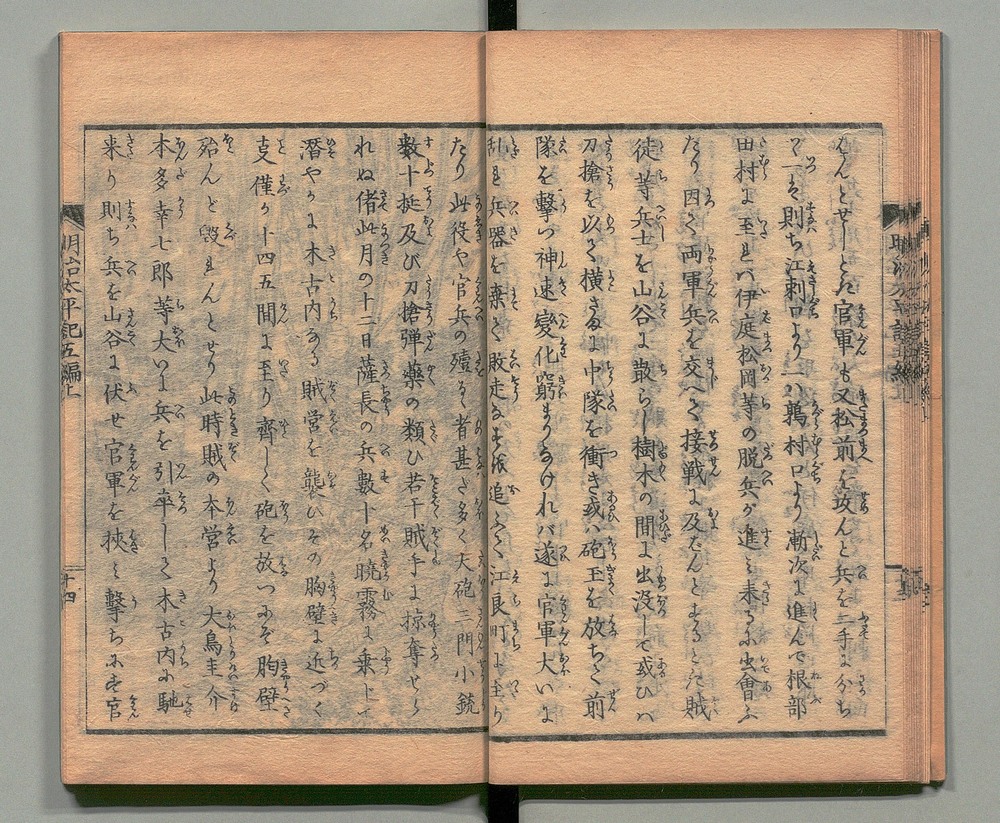 せんとせしとき官軍も又松前を攻んと兵を二手にわかち
て一は則ち江刺口より一ハ鶉村口より漸次に進んで根部
田村に至れバ伊庭松岡等の脱兵が進み来るに出會ふ
たり因て両軍兵を交へて接戦に及ばんとするとき賊
徒等兵士を山谷に散らし樹木の間に出没して或ひハ
刀槍を以て横さまに中隊を衝き或ハ砲玉を放ちて前
隊を撃つ神速變化窮まりなけれバ遂に官軍大いに
乱れ兵器を棄て敗走なすを追ふて江良町に至り
たり此役や官兵の殪るゝ者甚だ多く大砲三門小銃
數十挺及び刀槍弾藥の類ひ若干賊手に掠奪せら
れぬ偖此月の十二日薩長の兵數十名曉霧に乗じて
潜やかに木古内なる賊営を襲ひその胸壁に近づく
支僅か十四五間に至り齊しく砲を放つにぞ胸壁
殆んど毀れんとせり此時賊の本営より大鳥圭介
本多幸七郎等大いに兵を引率して木古内に馳
来り則ち兵を山谷に伏せ官軍を挾み撃ちにす官
明治太平記五編上
十四